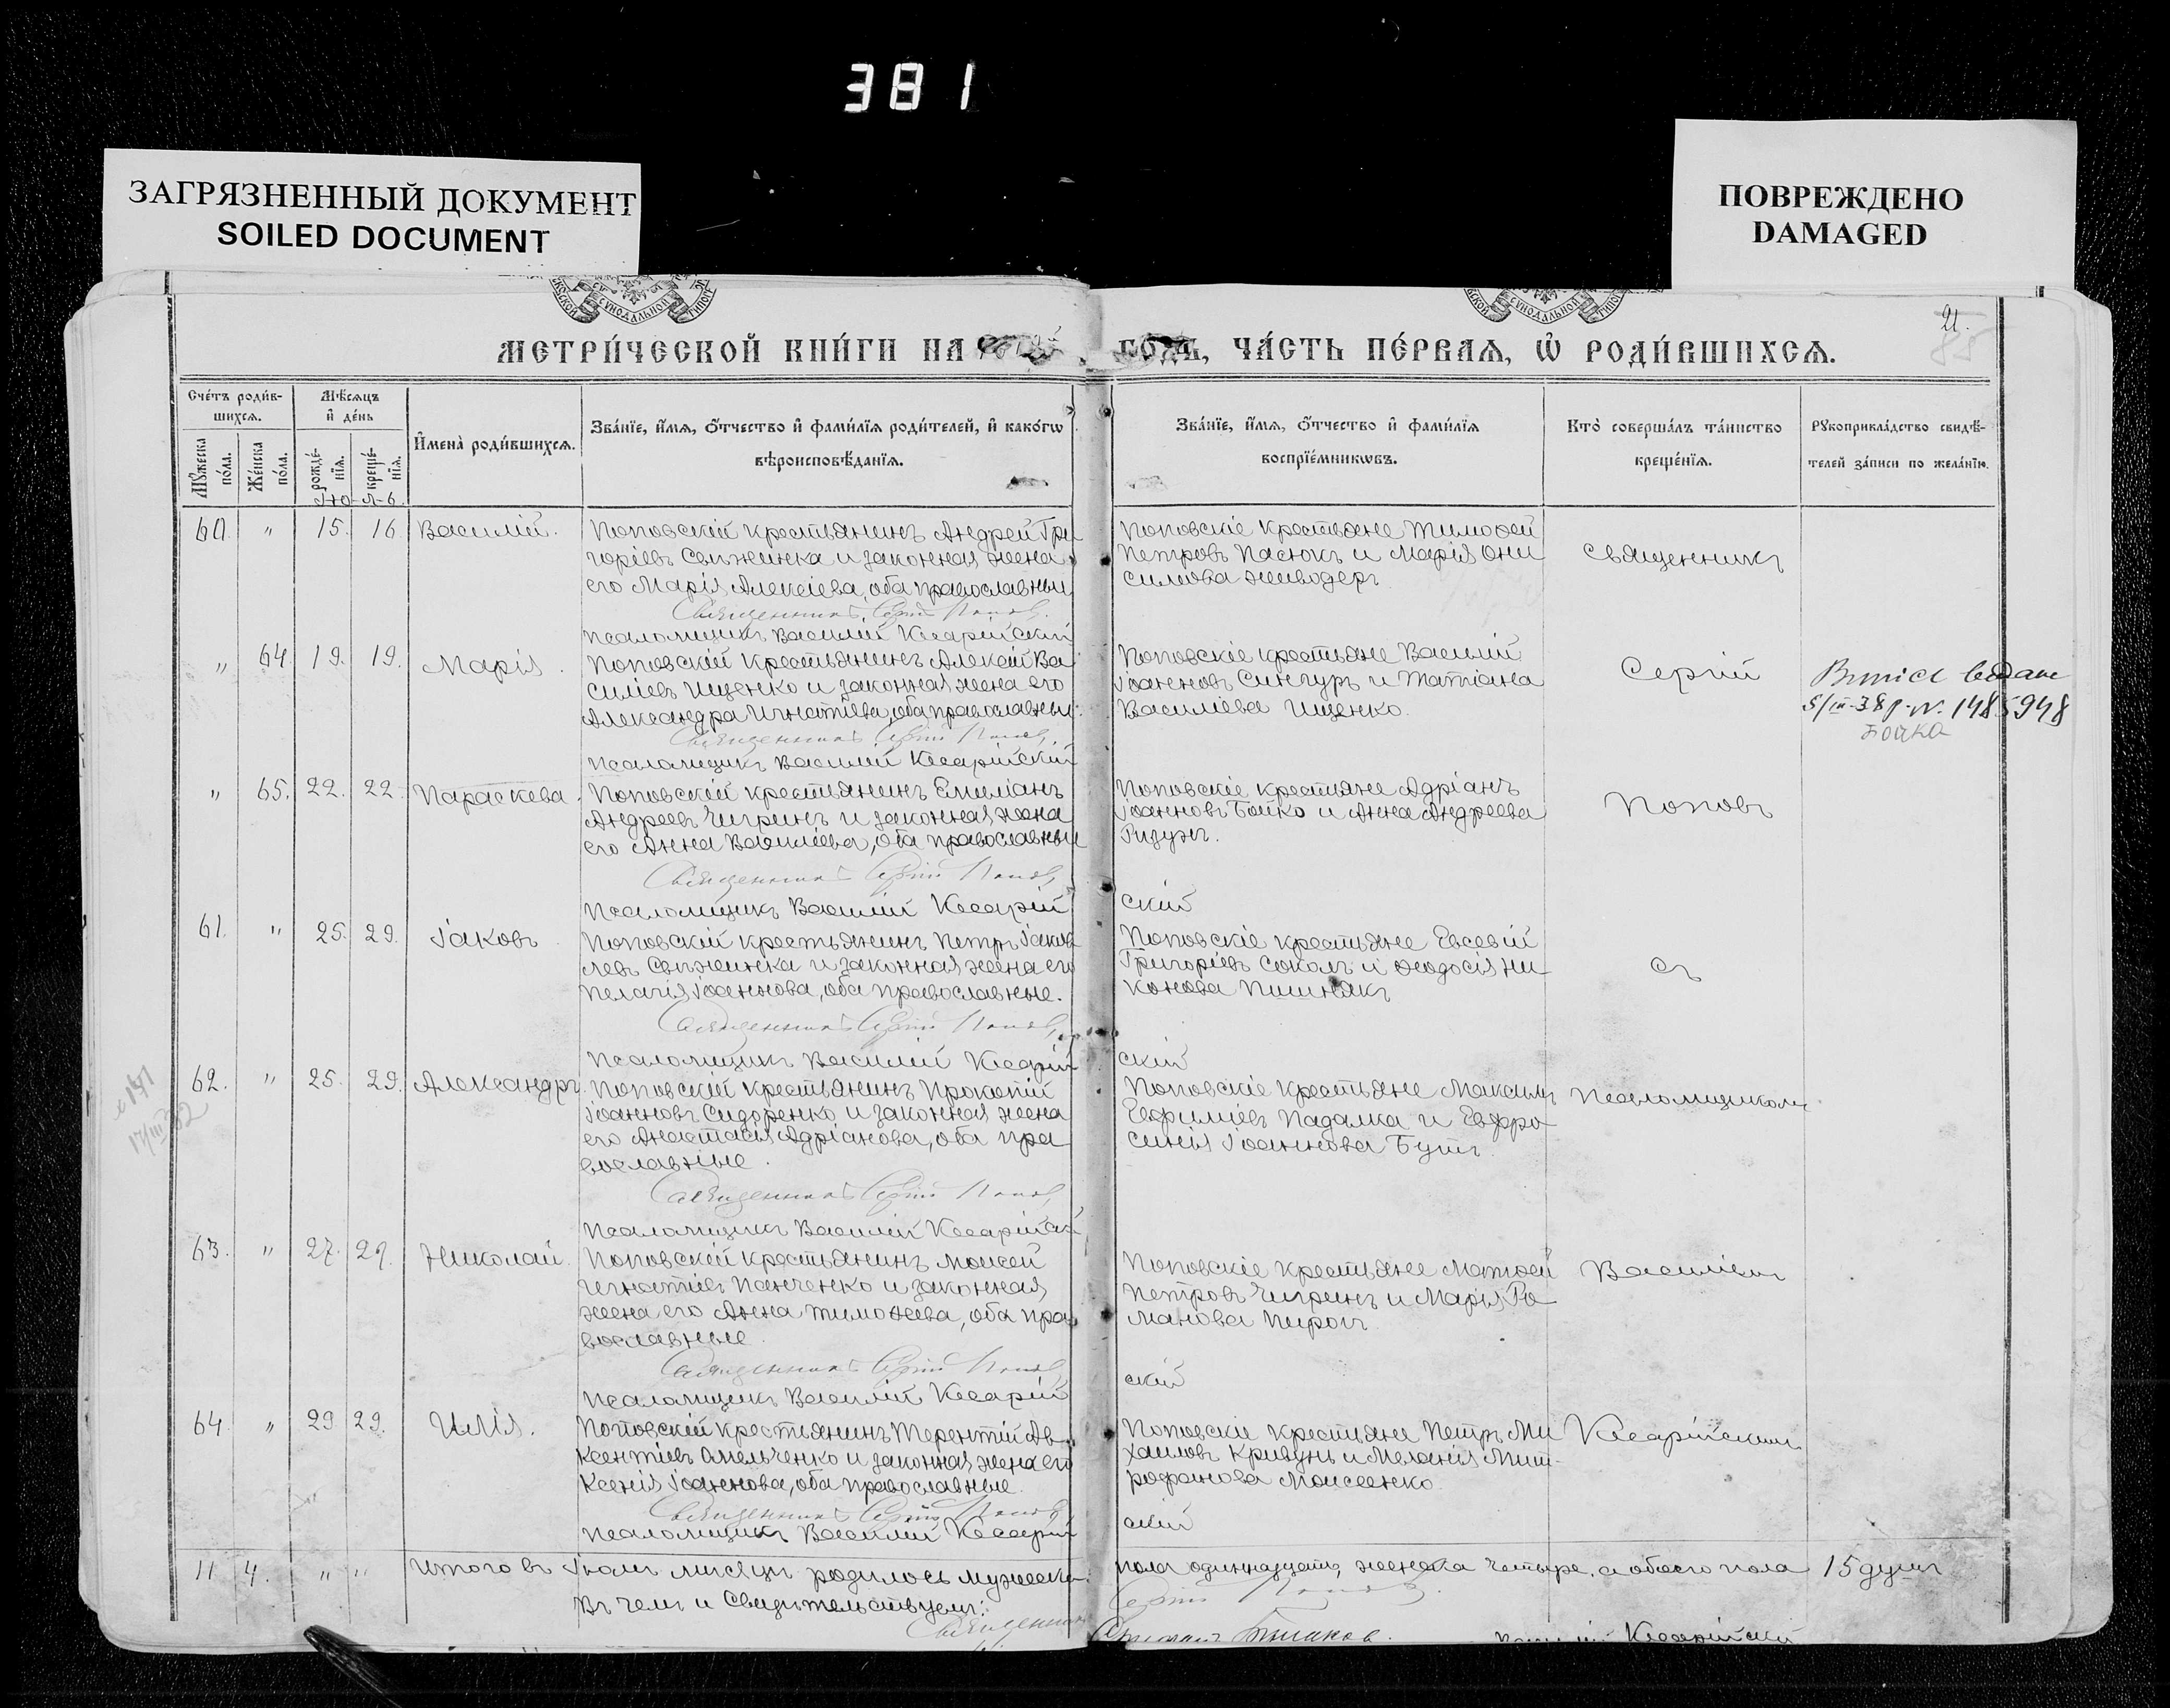 381
ЗАГРЯЗНЕННЫЙ ДОКУМЕНТ
SOILED DOCUMENT
ПОВРЕЖДЕНО
DAMAGED
21.
МЕТРИ́ЧЕСКОЙ КНИ́ГИ НА
ГОДЪ, ЧА́СТЬ ПЕ́РВАЯ, Ѡ҆ РОДИ́ВШИХСЯ.
Сче́тъ роди́в-
шихсѧ.
Мѣ́сѧцъ
и҆ де́нь
Мꙋ́жеска
по́ла.
Же́нска
по́ла.
рожде́-
нїѧ.
креще́-
нїѧ.
И҆мена̀ роди́вшихсѧ.
Зва́нїе, и҆́мѧ, ѻ҆́тчество и҆ фами́лїѧ роди́телей, и҆ како́гѡ
вѣроисповѣ́данїѧ.
Зва́нїе, и҆́мѧ, ѻ҆́тчество и҆ фами́лїѧ
воспрїе́мникѡвъ.
Кто̀ соверша́лъ та́инство
креще́нїѧ.
Рꙋкоприкла́дство свидѣ́-
телей за́писи по жела́нїю.
Іюль
60. " 15. 16. Василій.
Поповскій крестьянинъ Андрей Гри
горіевъ Свѣжинка и законная жена
его Марія Алексіева, оба православные
Священникъ Сергій Поповъ.
Псаломщикъ Василій Кесарійскій
Поповскіе крестьяне Тимоѳей
Петровъ Пасюкъ и Марія Они
симова Живодеръ
Священникъ
" 64. 19. 19. Марія.
Поповскій крестьянинъ Алексій Ва
силіевъ Ищенко и законная жена его
Александра Игнатіева, оба православные.
Священникъ Сергій Поповъ
Псаломщикъ Василій Кесарійскій
Поповскіе крестьяне Василій
Іоанновъ Сингуръ и Татіана
Василіева Ищенко.
Сергій
5/III-38 р. N. 1485948
Бойка
" 65. 22. 22. Параскева.
Поповскій крестьянинъ Емиліанъ
Андреевъ Чигринъ и законная жена
его Анна Василіева, оба православные
Священникъ Сергій Поповъ
Псаломщикъ Василій Кесарій
скій
Поповскіе крестьяне Адріанъ
Іоанновъ Бойко и Анна Андреева
Ризунъ.
Поповъ
61. " 25. 29. Іаковъ
Поповскій крестьянинъ Петръ Іаков
левъ Свѣжинка и законная жена его
Пелагія Іоаннова, оба православные.
Священникъ Сергій Поповъ
Псаломщикъ Василій Кесарій
скій
Поповскіе крестьяне Евсевій
Григоріевъ Соколъ и Ѳеодосія Ни
конова Пишнякъ
съ
62. " 25. 29. Александръ.
Поповскій крестьянинъ Прокопій
Іоанновъ Сидоренко и законная жена
его Анастасія Адріанова, оба пра
вославные.
Священникъ Сергій Поповъ
Псаломщикъ Василій Кесарійскій
Поповскіе крестьяне Максимъ
Евфиміевъ Падалка и Евфро
синія Іоаннова Бутъ
Псаломщикомъ
63. " 27. 29. Николай.
Поповскій крестьянинъ Моисей
Игнатіевъ Панченко и законная
жена его Анна Тимоѳеева, оба пра
вославные.
Священникъ Сергій Поповъ
Псаломщикъ Василій Кесарій
скій
Поповскіе крестьяне Матѳей
Петровъ Чигринъ и Марія Ро
манова Пирогъ
Василіемъ
64. " 29 29. Илія.
Поповскій крестьянинъ Терентій Ав
ксентіевъ Омельченко и законная жена его
Ксенія Іоаннова, оба православные.
Священникъ Сергій Поповъ
Псаломщикъ Василій Кесарій
скій
Поповскіе крестьяне Петръ Ми
хаиловъ Кривунъ и Меланія Мит-
рофанова Моисеенко.
Кесарійскимъ
11 4. " " Итого въ Іюлѣ мѣсяцѣ родилось мужеска
пола одиннадцать, женска четыре, а обоего пола 15 душъ
Въ чемъ и свидѣтельствуемъ:
Священникъ
Сергій Поповъ.
Кесарійскій